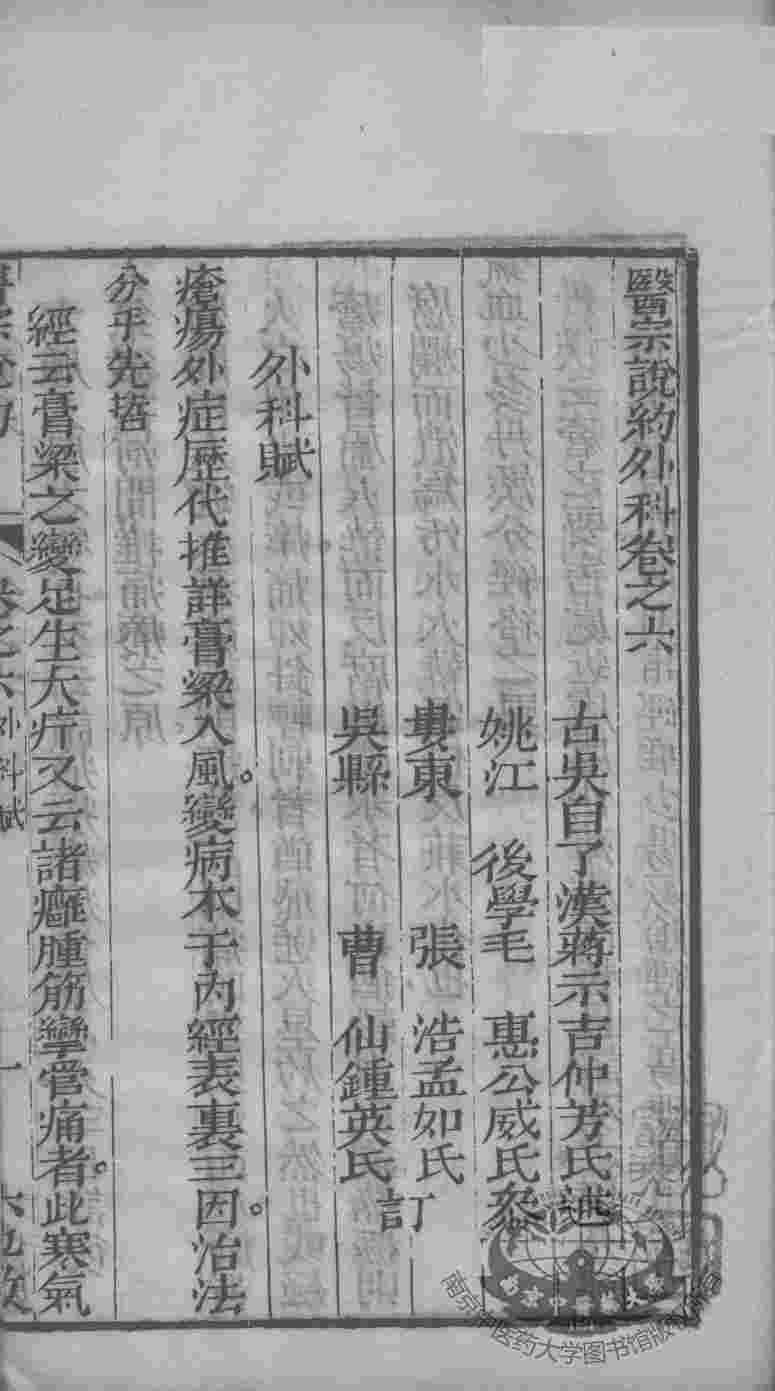 醫宗說約外科卷之六
古吳自了漢蔣示吉仲芳氏述
姚江 後學毛 惠公威氏叅
婁東 張 浩孟如氏
吳縣 曹 仙鍾英氏 訂
外科賦
瘡瘍外症歷代推詳膏粱入風。變病本于內經表裏三因。治法
分乎先哲
經云膏粱之變足生大疔又云諸癰腫筋攣骨痛者。此寒氣
卷之六 外科賦 一
南京中医药大学图书馆版权所有